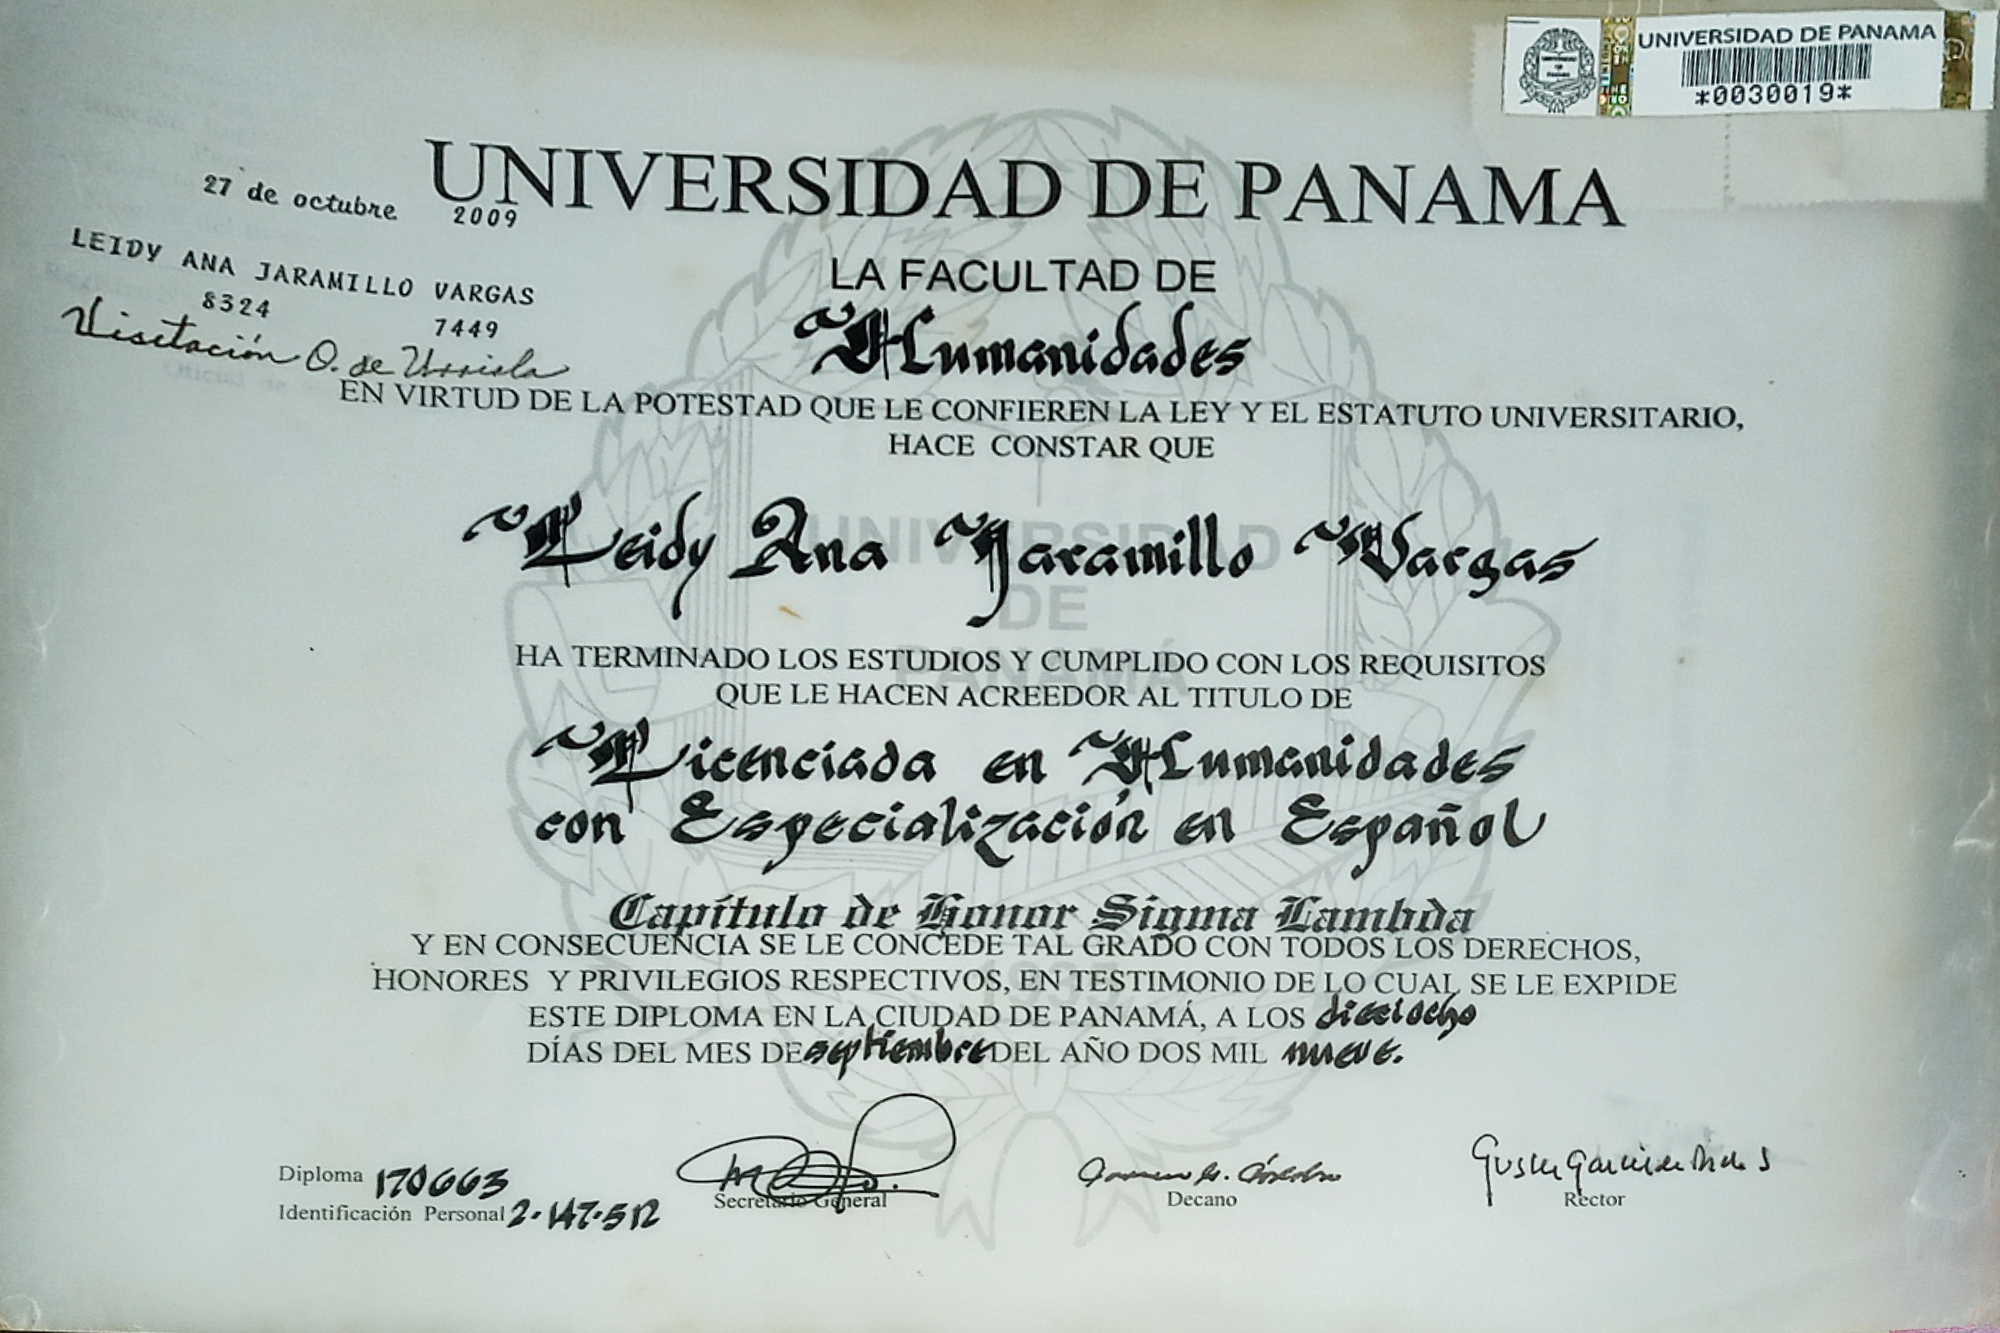 UNIVERSIDAD DE PANAMA
*0030019*
UNIVERSIDAD DE PANAMA
27 de octubre 2009
LEIDY ANA JARAMILLO VARGAS
8324 7449
Visitación O. de Urriola
LA FACULTAD DE
Humanidades
EN VIRTUD DE LA POTESTAD QUE LE CONFIEREN LA LEY Y EL ESTATUTO UNIVERSITARIO,
HACE CONSTAR QUE
Leidy Ana Jaramillo Vargas
UNIVERSIDAD
DE
PANAMÁ
HA TERMINADO LOS ESTUDIOS Y CUMPLIDO CON LOS REQUISITOS
QUE LE HACEN ACREEDOR AL TITULO DE
Licenciada en Humanidades
con Especialización en Español
Capítulo de Honor Sigma Lambda
Y EN CONSECUENCIA SE LE CONCEDE TAL GRADO CON TODOS LOS DERECHOS,
HONORES Y PRIVILEGIOS RESPECTIVOS, EN TESTIMONIO DE LO CUAL SE LE EXPIDE
1935
ESTE DIPLOMA EN LA CIUDAD DE PANAMÁ, A LOS dieciocho
DÍAS DEL MES DE septiembre DEL AÑO DOS MIL nueve.
Diploma 170663
Identificación Personal 2-147-512
Secretario General
Decano
Rector